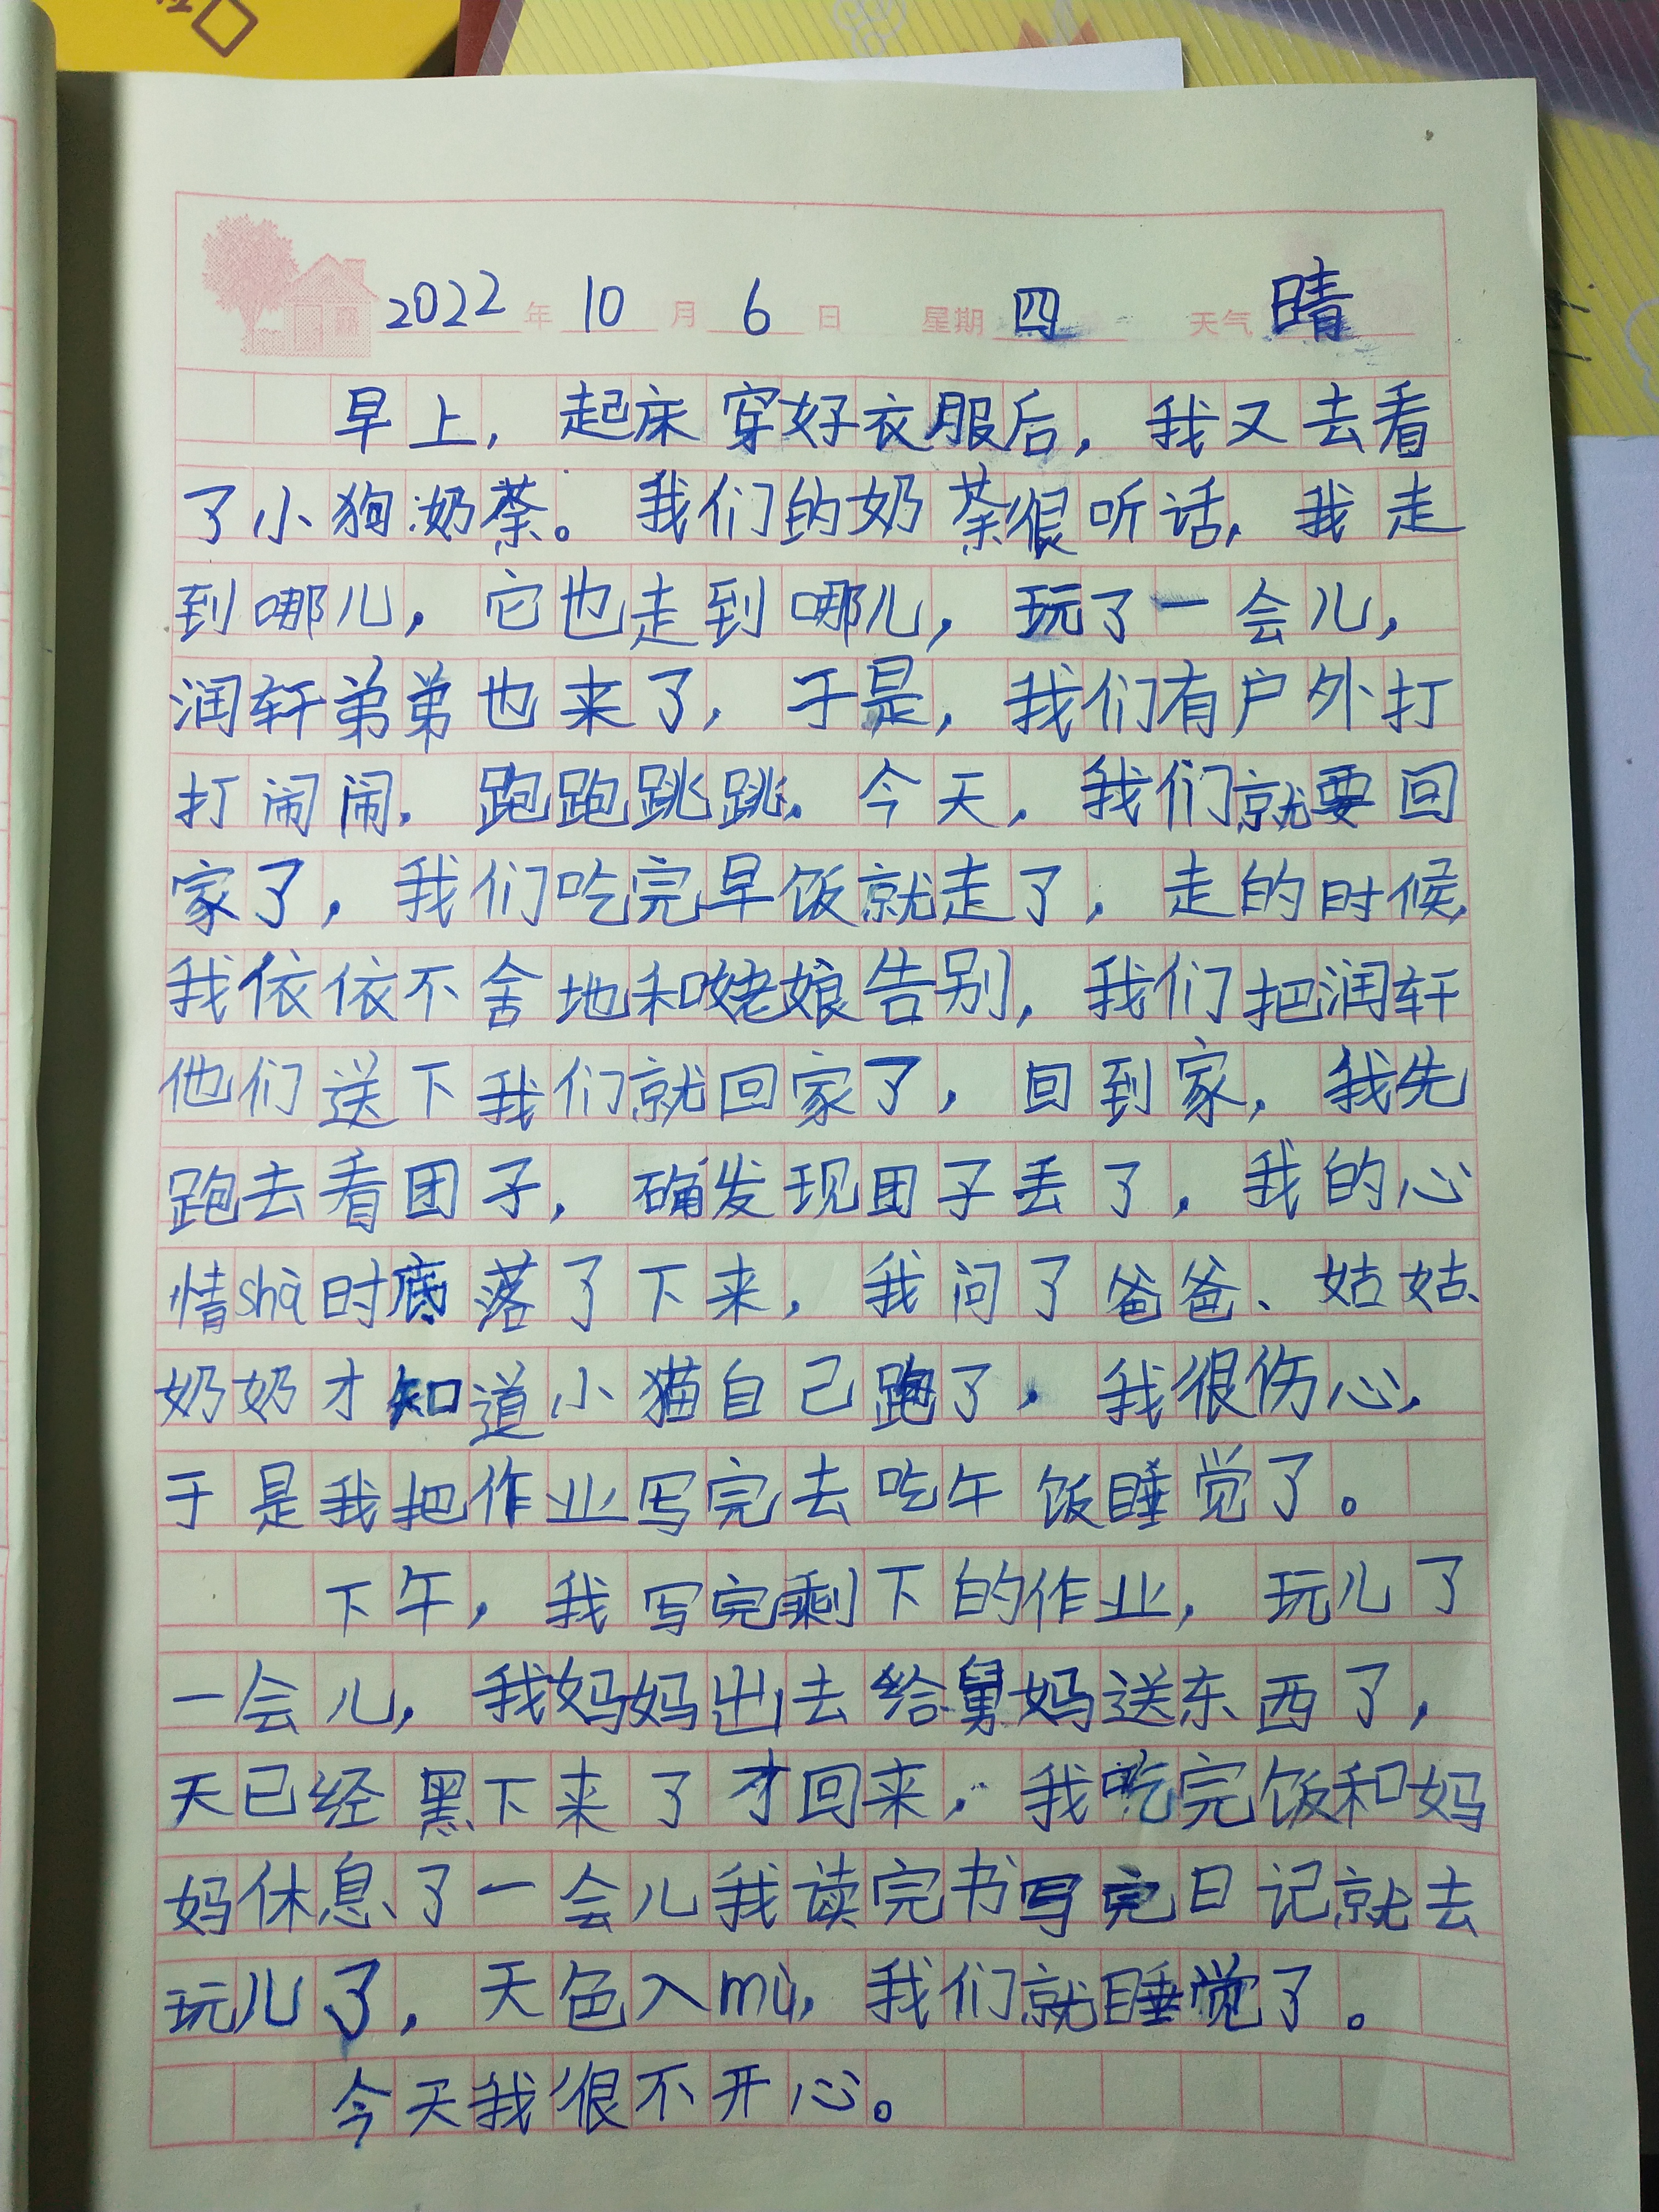 2022年10月6日 星期四 天气晴
早上，起床穿好衣服后，我又去看
了小狗奶茶。我们的奶茶很听话，我走
到哪儿，它也走到哪儿，玩了一会儿，
润轩弟弟也来了，于是，我们有户外打
打闹闹，跑跑跳跳。今天，我们就要回
家了，我们吃完早饭就走了，走的时候，
我依依不舍地和姥娘告别，我们把润轩
他们送下我们就回家了，回到家，我先
跑去看团子，确发现团子丢了，我的心
情shà时底落了下来，我问了爸爸、姑姑、
奶奶才知道小猫自己跑了，我很伤心，
于是我把作业写完去吃午饭睡觉了。
下午，我写完剩下的作业，玩儿了
一会儿，我妈妈出去给舅妈送东西了，
天已经黑下来了才回来，我吃完饭和妈
妈休息了一会儿我读完书写完日记就去
玩儿了，天色入mù，我们就睡觉了。
今天我很不开心。